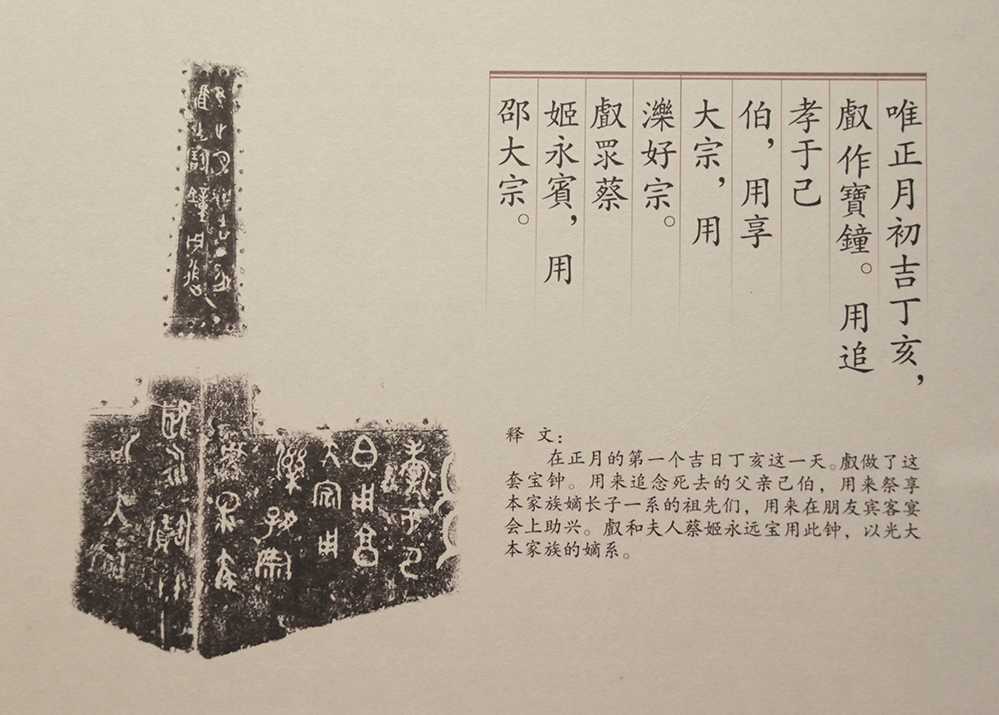 唯正月初吉丁亥，
𠭯作寶鐘。用追
孝于己
伯，用享
大宗，用
濼好宗。
𠭯眔蔡
姬永賓，用
邵大宗。
释 文：
在正月的第一个吉日丁亥这一天。𠭯做了这
套宝钟。用来追念死去的父亲己伯，用来祭享
本家族嫡长子一系的祖先们，用来在朋友宾客宴
会上助兴。𠭯和夫人蔡姬永远宝用此钟，以光大
本家族的嫡系。